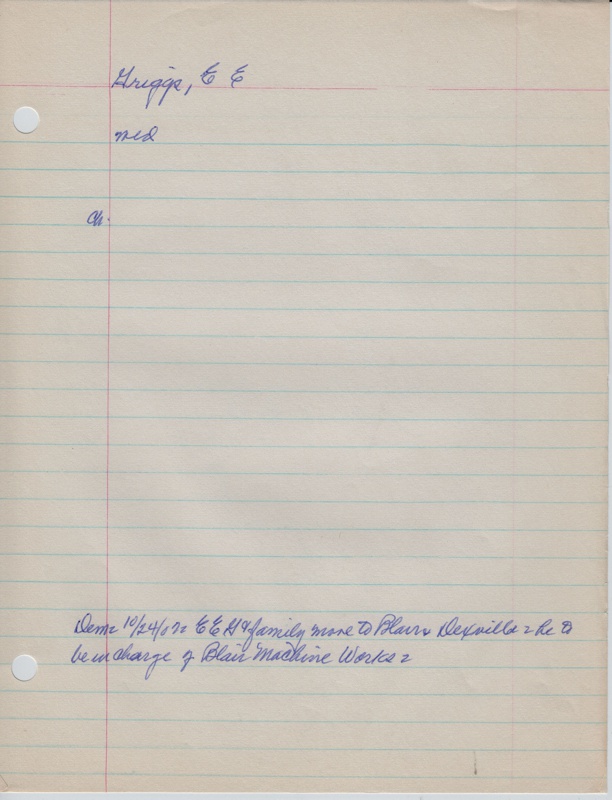 Griggs, E E
md
Ch.
Dem= 10/24/07= E E G & family move to Blair & Dexvilla = he to
be in charge of Blair Machine Works =